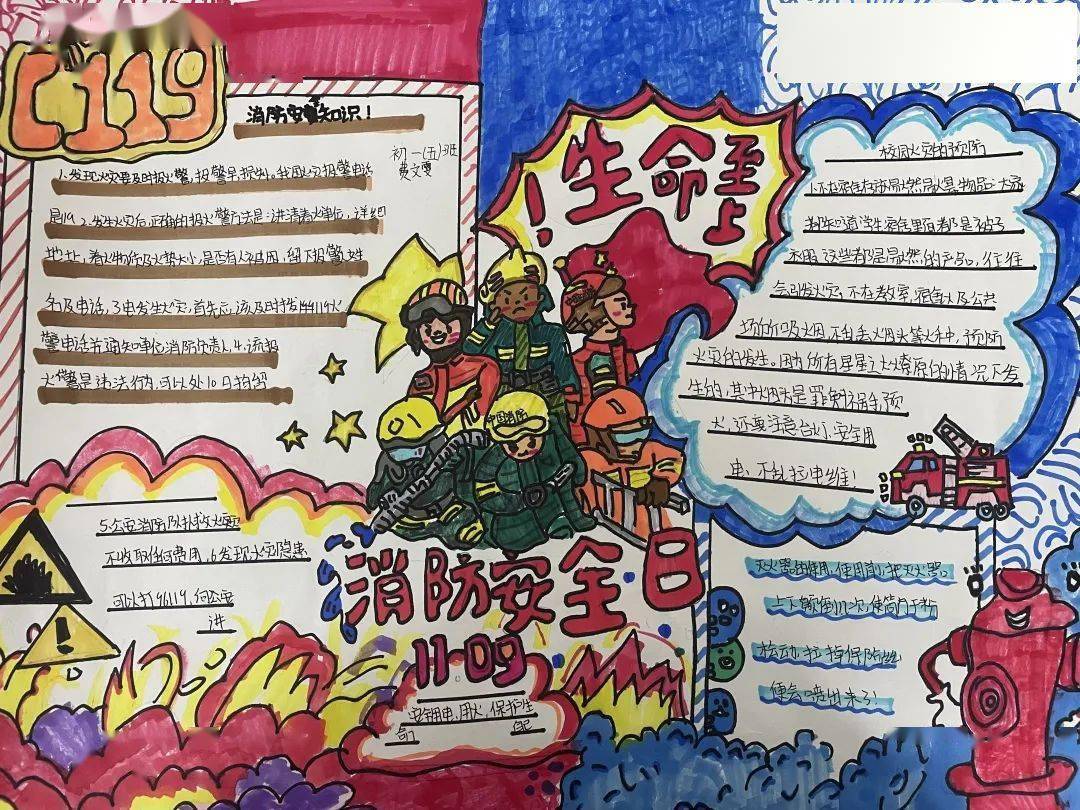 119
消防安全知识！
初一(五)班
费文雯
1.发现火灾要及时报火警,报警早损失小,我国火灾报警电话
是119 2.发生火灾后正确的报火警方法是:讲清着火单位,详细
地址,着火物质及火势大小,是否有人被困,留下报警姓
名及电话,3.电发生火灾,首先应该及时拨119火
警电话并通知单位消防负责人,4.谎报
火警是违法行为,可以处10日拘留
5.公安消防队扑救火灾
不收取任何费用,6发现火灾隐患
可以打96119,向公安
进
生命至上！
中国消防
消防安全日
11-09
安全用电,用火,保护生
命
校园火灾的预防
1.不在宿舍存放易燃易爆物品:大家
都知道学生宿舍里面都是被子
衣服,这些都是易燃的产品,往往
会引发火灾,不在教室,宿舍以及公共
场所吸烟,不乱丢烟头等火种,预防
火灾的发生。因为所有星星之火燎原的情况下发
生的,其中烟头是罪魁祸手,预
火,还要注意台灯,安全用
电,不乱拉电线！
灭火器的使用,使用前,把灭火器。
上下颠倒几次,使筒内干粉
松动,拉掉保险丝
便会喷出来了！